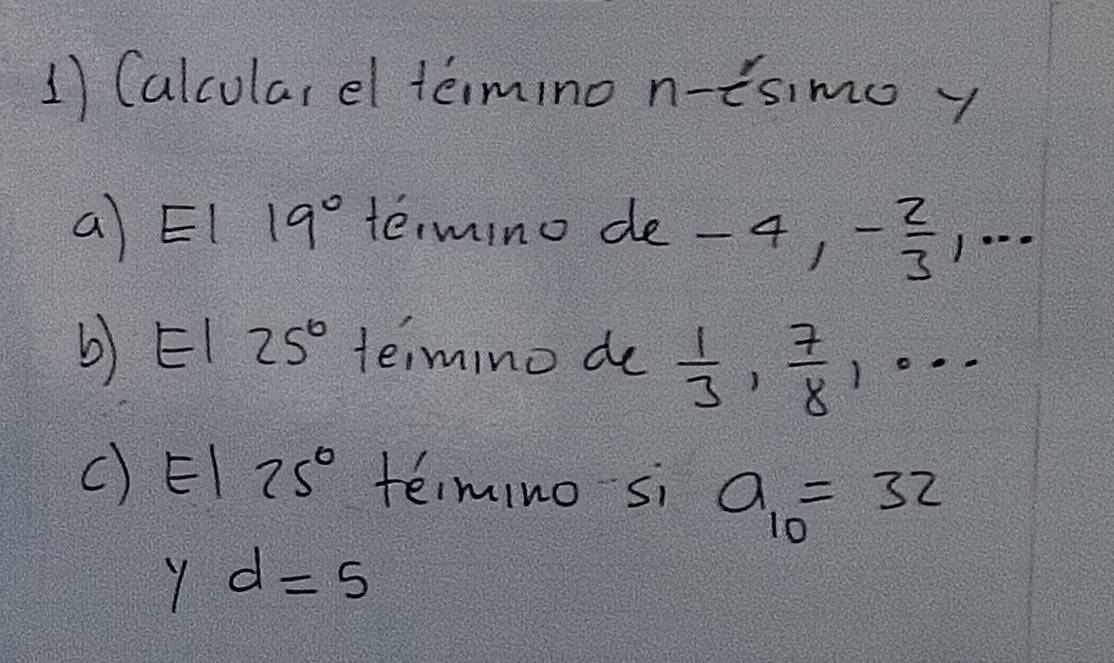 1) Calcular el término n-ésimo y
a) El 19° término de -4, -2/3, ...
b) El 25° término de 1/3, 7/8, ...
c) El 25° término si a₁₀ = 32
y d = 5